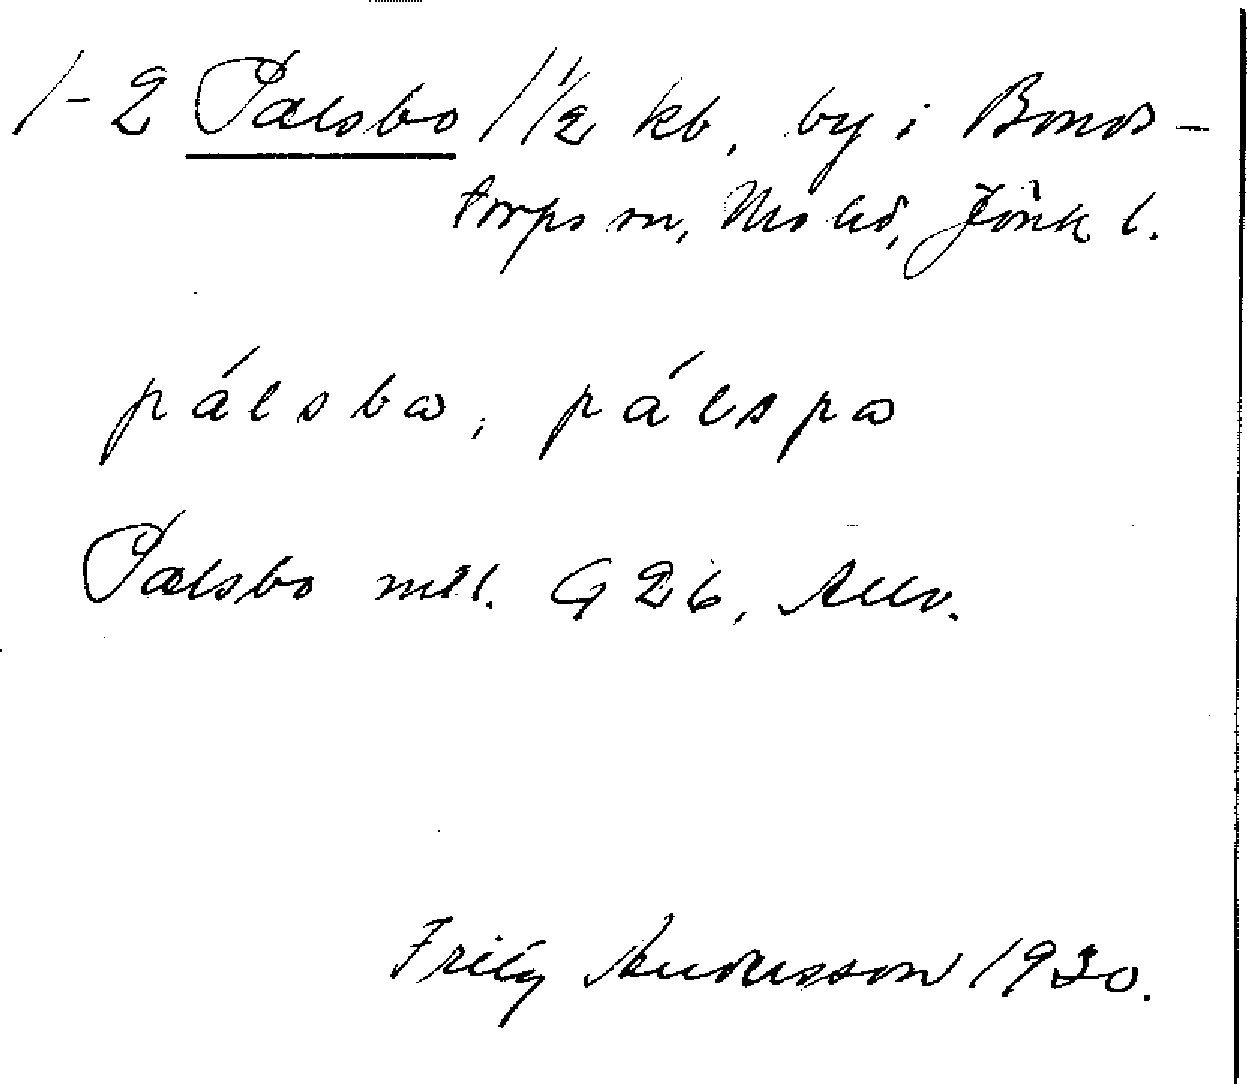 1-2 Palsbo 1 1/2 kb, by i Bonds-
torps sn, Mo hd, Jönk l.
pálsbω, pálspω
Palsbo mtl. G 26, Allv.
Fritz Andersson 1930.